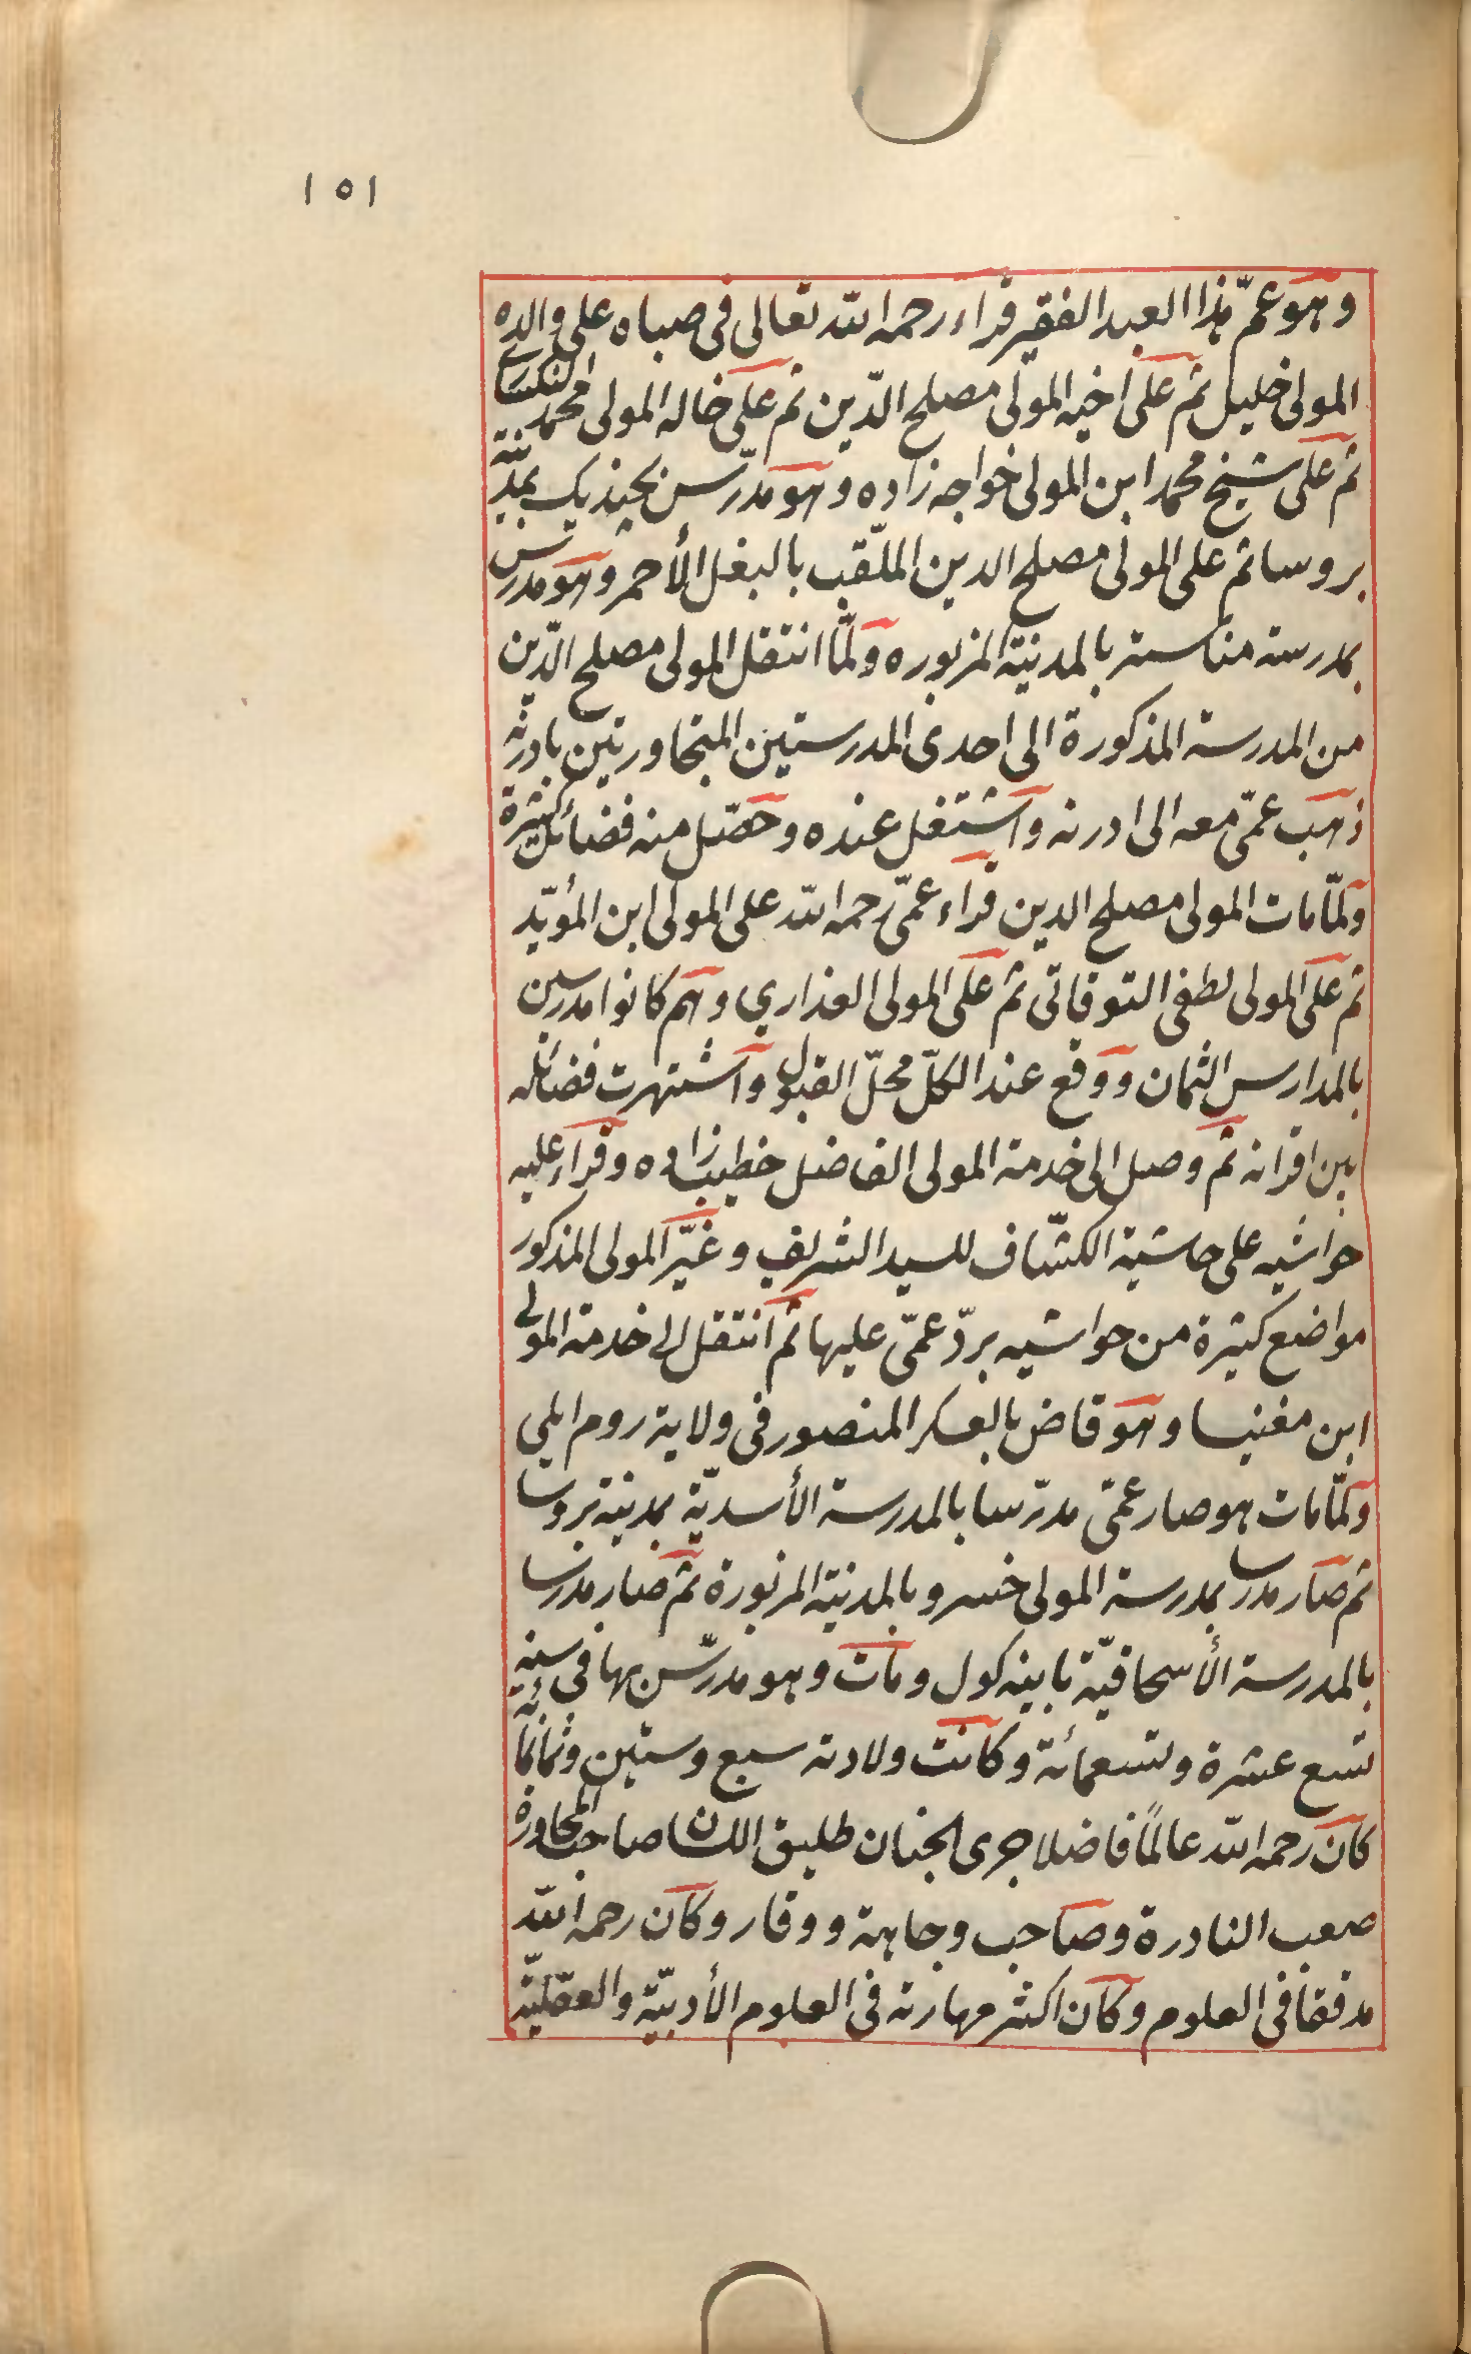 ١٥١
وهو عمّ هذا العبد الفقير قراء رحمه الله تعالى فى صباه على والده
المولى خليل ثم على اخيه المولى مصلح الدّين ثم على خاله المولى محمد النكسارى
ثم على شيخ محمد ابن المولى خواجه زاده وهو مدرّس بجنديك بمدينة
بروسا ثم على المولى مصلح الدين الملّقب بالبغل الأحمر وهو مدرس
بمدرسة مناستر بالمدينة المزبوره ولمّا انتقل المولى مصلح الدّين
من المدرسة المذكورة الى احدى المدرستين المتجاورتين بادرنه
ذهب عمّى معه الى ادرنه واشتغل عنده وحصّل منه فضائل كثيرة
ولمّا مات المولى مصلح الدين قراء عمّى رحمه الله على المولى ابن المؤيّد
ثم على المولى لطفى التوقاتى ثم على المولى العذارى وهم كانوا مدرسين
بالمدارس الثمان ووقع عند الكلّ محلّ القبول واشتهرت فضائله
بين اقرانه ثم وصل الى خدمة المولى الفاضل خطيب زاده وقراء عليه
حواشيه على حاشية الكشّاف للسيد الشريف وغيّر المولى المذكور
مواضع كثيرة من حواشيه بردّ عمّى عليها ثم انتقل الى خدمة المولى
ابن مغنيسا وهو قاض بالعسكر المنصور فى ولاية روم ايلى
ولمّا مات هو صار عمّى مدرّسا بالمدرسة الأسديّة بمدينة بروسا
ثم صار مدرسا بمدرسة المولى خسرو بالمدينة المزبورة ثم صار مدرسا
بالمدرسة الأسحاقيّة باينه كول ومات وهو مدرّس بها فى سنة
تسع عشرة وتسعمائة وكانت ولادته سبع وستين وثمانمائة
كان رحمه الله عالمًا فاضلا جرى الجنان طليق اللسان صاحب المحاورة
صعب النادرة وصاحب وجاهة ووقار وكان رحمه الله
مدققا فى العلوم وكان اكثر مهارته فى العلوم الأدبيّة والعقليّة